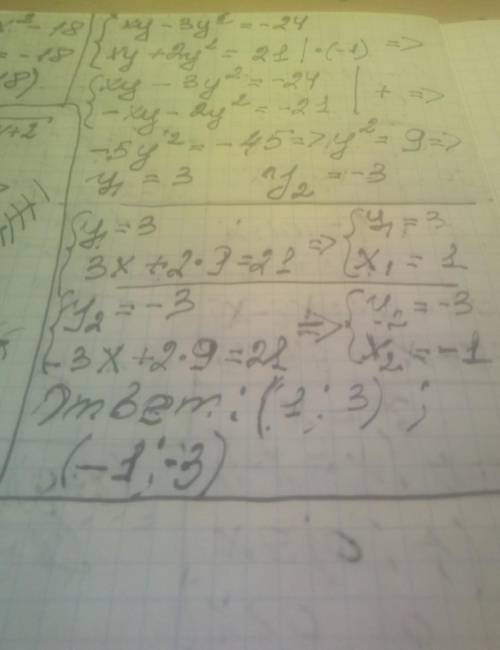 x² - 18
= -18
18)
x+2
{ xy - 3y² = -24
xy + 2y² = 21 | ·(-1) =>
{ xy - 3y² = -24
-xy - 2y² = -21 | + =>
-5y² = -45 => y² = 9 =>
y₁ = 3 y₂ = -3
{ y₁ = 3
3x + 2·9 = 21 => { y₁ = 3
x₁ = 1
{ y₂ = -3
-3x + 2·9 = 21 => { y₂ = -3
x₂ = -1
Ответ: (1; 3);
(-1; -3)